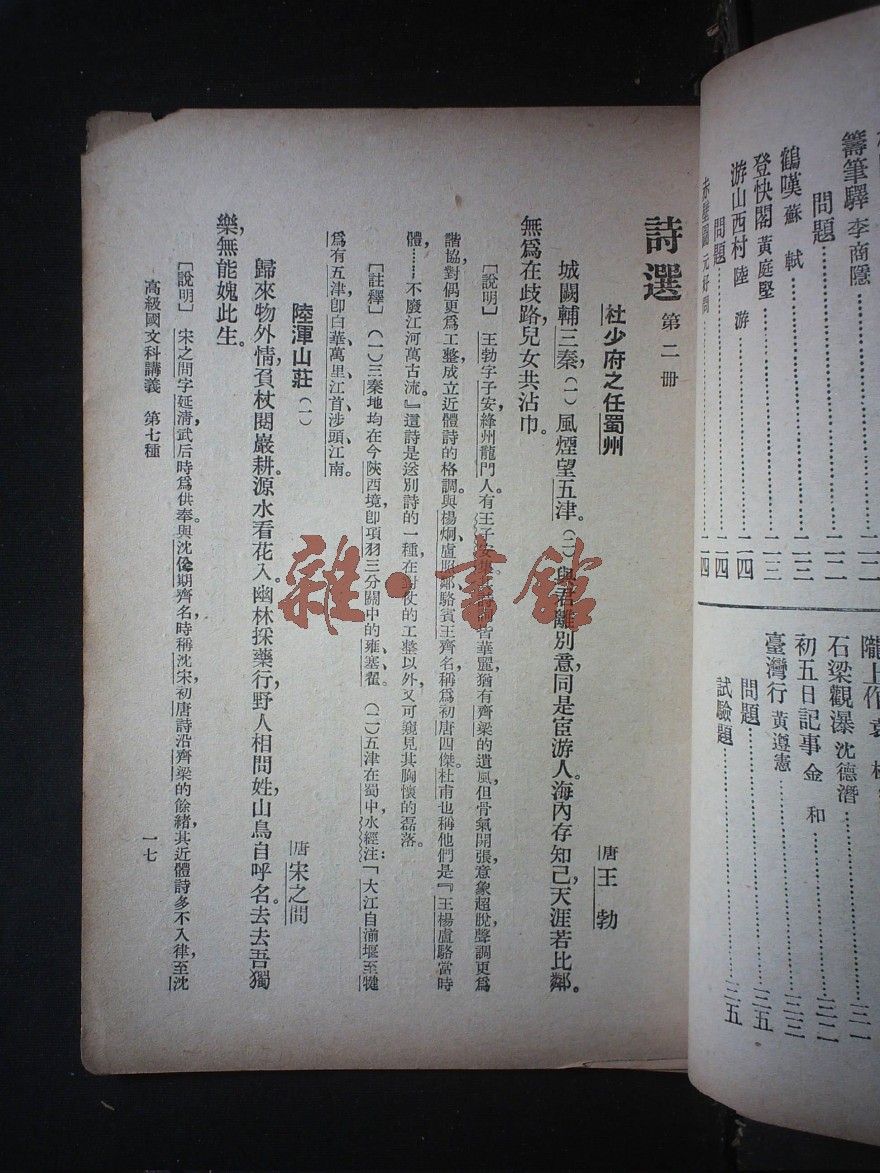 籌筆驛 李商隱……二二
問題……二二
鶴嘆 蘇軾……二三
登快閣 黃庭堅……二三
游山西村 陸游……二四
問題……二四
赤壁圖 元好問……二四
石梁觀瀑 沈德潛……三一
初五日記事 金和……三二
臺灣行 黃遵憲……三三
問題……三五
試驗題……三五
詩選 第二册
杜少府之任蜀州 唐 王勃
城闕輔三秦,(一)風煙望五津。(二)與君離別意,同是宦游人。海內存知己,天涯若比鄰。
無爲在歧路,兒女共沾巾。
[說明] 王勃字子安,絳州龍門人。有王子安集。其詩詞皆華麗,猶有齊梁的遺風,但骨氣開張,意象超脫,聲調更爲
諧協,對偶更爲工整,成立近體詩的格調。與楊炯、盧照鄰、駱賓王齊名,稱爲初唐四傑。杜甫也稱他們是『王楊盧駱當時
體,……不廢江河萬古流。』這詩是送別詩的一種,在對仗的工整以外,又可窺見其胸懷的磊落。
[註釋] (一)三秦,地均在今陝西境,卽項羽三分關中的雍、塞、翟。 (二)五津在蜀中,水經注:「大江自湔堰至犍
爲有五津,卽白華、萬里、江首、涉頭、江南。
陸渾山莊(一) 唐 宋之問
歸來物外情,負杖閱巖耕。源水看花入,幽林採藥行。野人相問姓,山鳥自呼名。去去吾獨
樂,無能媿此生。
[說明] 宋之問字延清,武后時爲供奉。與沈佺期齊名,時稱沈宋。初唐詩沿齊梁的餘緒,其近體詩多不入律,至沈
高級國文科講義 第七種 一七
雜·書館